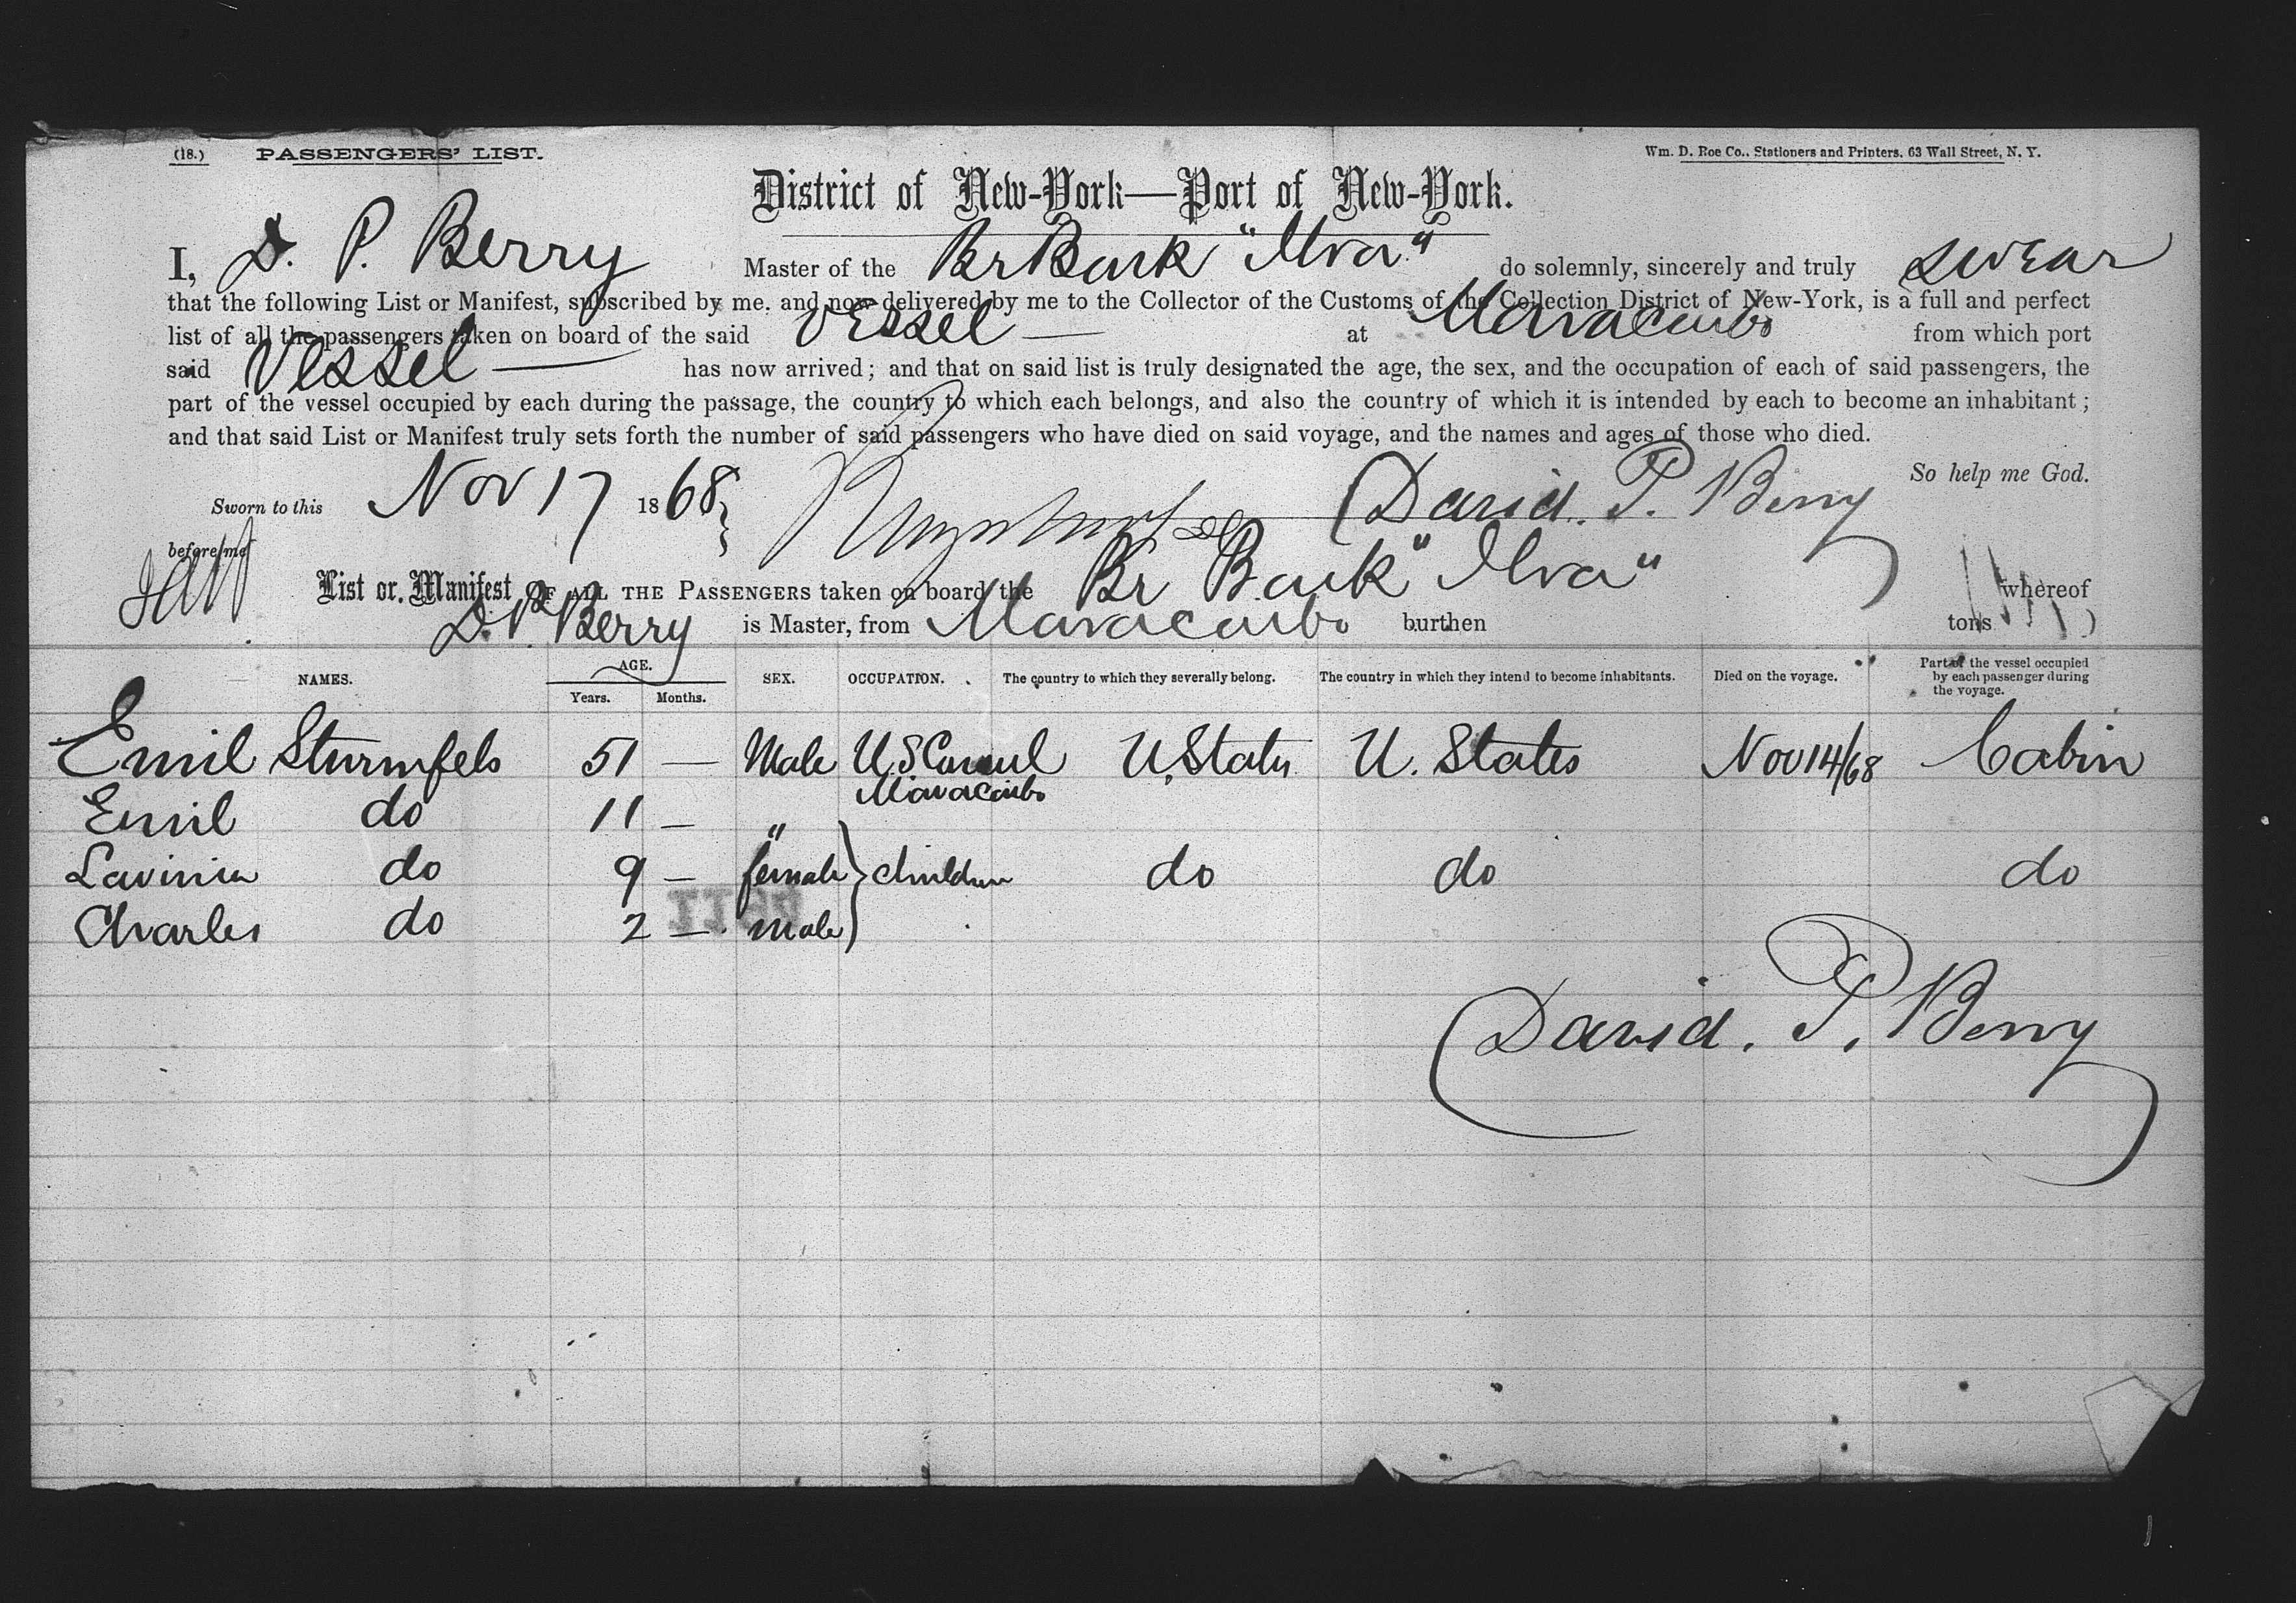 (18.) PASSENGERS' LIST.
Wm. D. Roe Co., Stationers and Printers, 63 Wall Street, N. Y.
District of New-York—Port of New-York.
I, D. P. Berry Master of the Br Bark "Ilva" do solemnly, sincerely and truly swear
that the following List or Manifest, subscribed by me, and now delivered by me to the Collector of the Customs of the Collection District of New-York, is a full and perfect
list of all the passengers taken on board of the said Vessel — at Maracaibo from which port
said Vessel — has now arrived; and that on said list is truly designated the age, the sex, and the occupation of each of said passengers, the
part of the vessel occupied by each during the passage, the country to which each belongs, and also the country of which it is intended by each to become an inhabitant;
and that said List or Manifest truly sets forth the number of said passengers who have died on said voyage, and the names and ages of those who died.
So help me God.
Sworn to this Nov 17 1868 David. P. Berry
before me
List or Manifest OF ALL THE PASSENGERS taken on board the Br Bark "Ilva" whereof
D. P. Berry is Master, from Maracaibo burthen tons
NAMES. AGE. Years. Months. SEX. OCCUPATION. The country to which they severally belong. The country in which they intend to become inhabitants. Died on the voyage. Part of the vessel occupied by each passenger during the voyage.
Emil Sturmfels 51 — Male U.S Consul Maracaibo U. States U. States Nov 14/68 Cabin
Emil do 11 — "
Lavinia do 9 — female children do do do
Charles do 2 — male
David. P. Berry